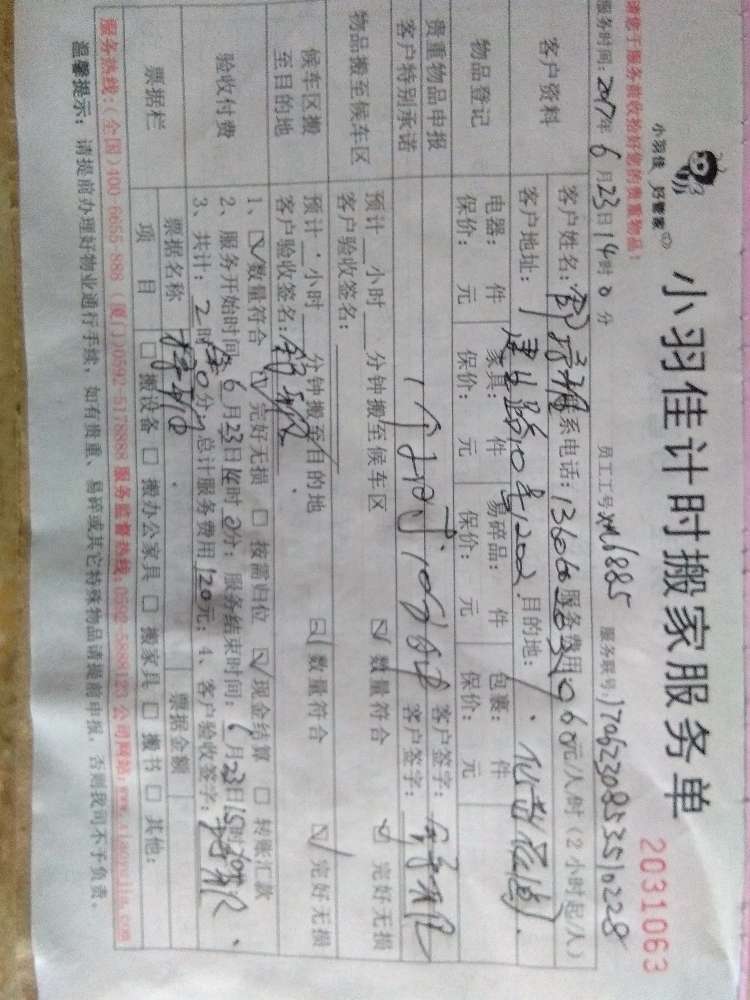 小羽佳 好管家
小羽佳计时搬家服务单
2031063
请您于服务前收拾好您的贵重物品!
服务时间: 2017年 6月 23日 14时 0分 员工工号: 服务联号:
客户资料 客户姓名: 联系电话: 服务费用 60元/人/时(2小时起/人)
客户地址: 目的地:
物品登记 电器: 件 家具: 件 易碎品: 件 包裹: 件
保价: 元 保价: 元 保价: 元 保价: 元
贵重物品申报 客户签字:
客户特别承诺 客户签字:
物品搬至候车区 预计 小时 分钟搬至候车区 ☑ 数量符合 ☑ 完好无损
客户验收签名:
候车区搬至目的地 预计 小时 分钟搬至目的地 ☑ 数量符合 ☑ 完好无损
客户验收签名:
验收付费 1、☑ 数量符合 ☑ 完好无损 □ 按需归位 ☑ 现金结算 □ 转账汇款
2、服务开始时间: 6月23日14时0分; 服务结束时间: 6月23日15时
3、共计: 2时 分, 总计服务费用120元; 4、客户验收签字:
票据栏 票据名称 票据金额
项目 □ 搬设备 □ 搬办公家具 □ 搬家具 □ 搬书 □ 其他:
服务热线:(全国)400-6655-888 (厦门)0592-5178888 服务监督热线:0592-5888123 公司网站: www.xiaoyujia.com
温馨提示: 请提前办理好物业通行手续, 如有贵重、易碎或其它特殊物品请提前申报, 否则我司不予负责。